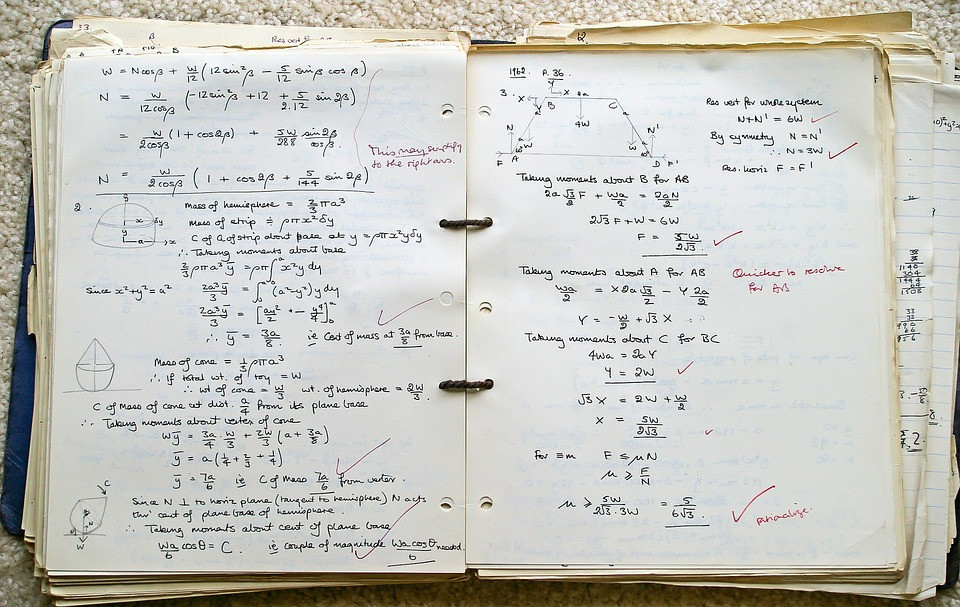 33
W = Ncosβ + W/12 (12 sin²β − 5/12 sinβ cosβ)
N = W/12cosβ (−12sin²β + 12 + 5/2.12 sin2β)
= W/2cosβ (1 + cos2β) + 5W/288 sin2β/cosβ
This may simplify
to the right ans.
N = W/2cosβ (1 + cos2β + 5/144 sin2β)
2.
Mass of hemisphere = 2/3 πa³
Mass of strip ≡ ρπx²δy
C of M of strip about base at y = ρπx²yδy
∴ Taking moments about base
2/3 ρπa³ȳ = ρπ∫₀ᵃ x²y dy
Since x²+y²=a² 2a³ȳ/3 = ∫₀ᵃ (a²−y²) y dy
2a³ȳ/3 = [ay²/2 − y⁴/4]₀ᵃ
∴ ȳ = 3a/8 ie Cent of mass at 3a/8 from base.
Mass of cone = 1/3 ρπa³
∴ If total wt. of toy = W
∴ wt of cone = W/3 wt. of hemisphere = 2W/3.
C of Mass of cone at dist. a/4 from its plane base
∴ Taking moments about vertex of cone
Wȳ = 3a/4 . W/3 + 2W/3 (a + 3a/8)
ȳ = a(1/4 + 2/3 + 1/4)
ȳ = 7a/6 ie C of Mass 7a/6 from vertex.
Since N ⊥ to horiz plane (tangent to hemisphere) N acts
thr' cent of plane base of hemisphere.
∴ Taking moments about cent of plane base
Wa/6 cosθ = C. ie couple of magnitude Wa cosθ/6 needed.
C
N
W
1962. P. 36
3.
Y
X X 2a
B C
4W
N N'
W W
F A D F'
Res vert for whole system
N+N' = 6W
By symmetry N = N'
∴ N = 3W
Res. horiz F = F'
Taking moments about B for AB
2a √3/2 F + Wa/2 = 2aN/2
2√3 F + W = 6W
F = 5W/2√3.
Taking moments about A for AB
Quicker to resolve
for AB
Wa/2 = X 2a √3/2 − Y 2a/2
Y = −W/2 + √3 X
Taking moments about C for BC
4Wa = 2a Y
Y = 2W
√3 X = 2W + W/2
X = 5W/2√3
For ≡m F ≤ μN
μ ≥ F/N
μ ≥ 5W/2√3.3W = 5/6√3.
rationalize.